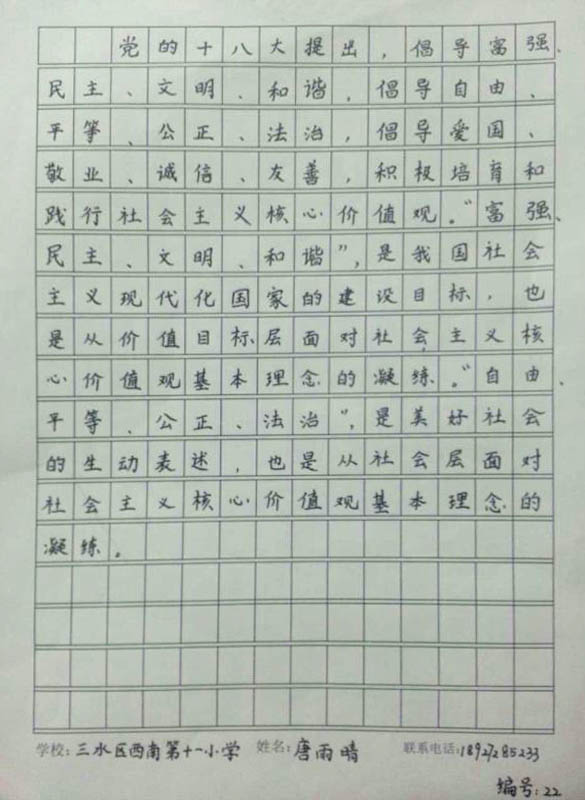 党的十八大提出，倡导富强、
民主、文明、和谐，倡导自由、
平等、公正、法治，倡导爱国、
敬业、诚信、友善，积极培育和
践行社会主义核心价值观。“富强、
民主、文明、和谐”，是我国社会
主义现代化国家的建设目标，也
是从价值目标层面对社会主义核
心价值观基本理念的凝练。“自由、
平等、公正、法治”，是美好社会
的生动表述，也是从社会层面对
社会主义核心价值观基本理念的
凝练。
学校：三水区西南第十一小学 姓名：唐雨晴 联系电话：18927285233
编号：22